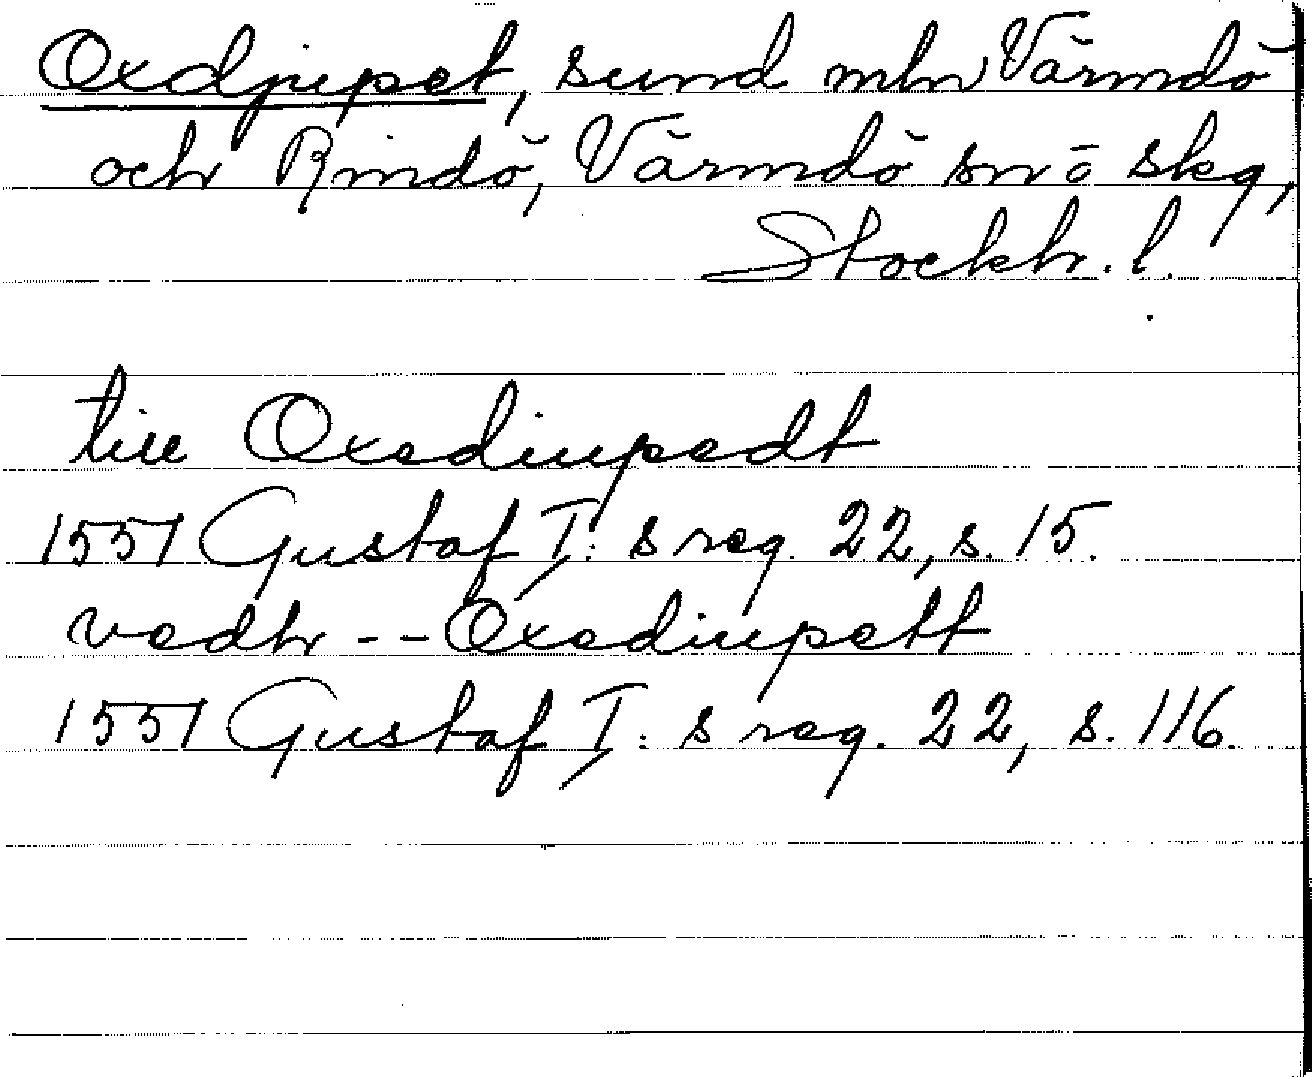 Oxdjupet, sund mln Värmdö
och Rindö, Värmdö sn o skg,
Stockh. l.
till Oxediupedt
1551 Gustaf I: s reg. 22, s. 15.
vedh -- Oxediupett
1551 Gustaf I: s reg. 22, s. 116.